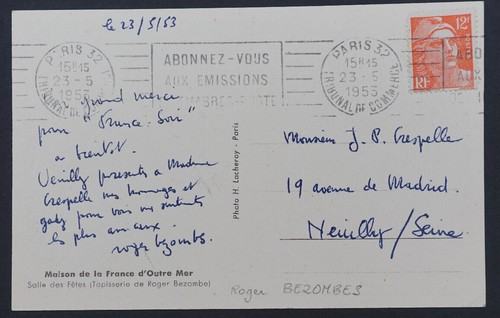 le 23/5/53
PARIS 32
15H15
23-5
1953
TRIBUNAL DE COMMERCE
ABONNEZ-VOUS
AUX EMISSIONS
PARIS 32
15H15
23-5
1953
TRIBUNAL DE COMMERCE
12F
RF
grand merci
pour "France-Soir"
a bientot.
Veuillez presenter a Madame
Crespelle mes hommages et
gardez pour vous mes sentiments
les plus amicaux.
roger bezombes.
Maison de la France d'Outre Mer
Salle des Fêtes (Tapisserie de Roger Bezombe)
Photo H. Lacheroy - Paris
Monsieur J. P. Crespelle
19 avenue de Madrid.
Neuilly/Seine
Roger BEZOMBES